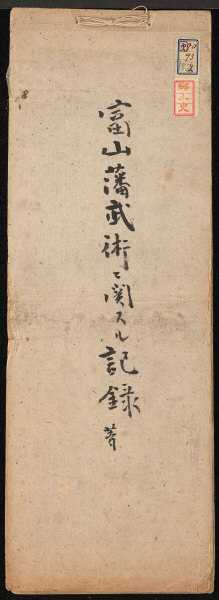 富山藩武術ニ関スル記録
郷土史